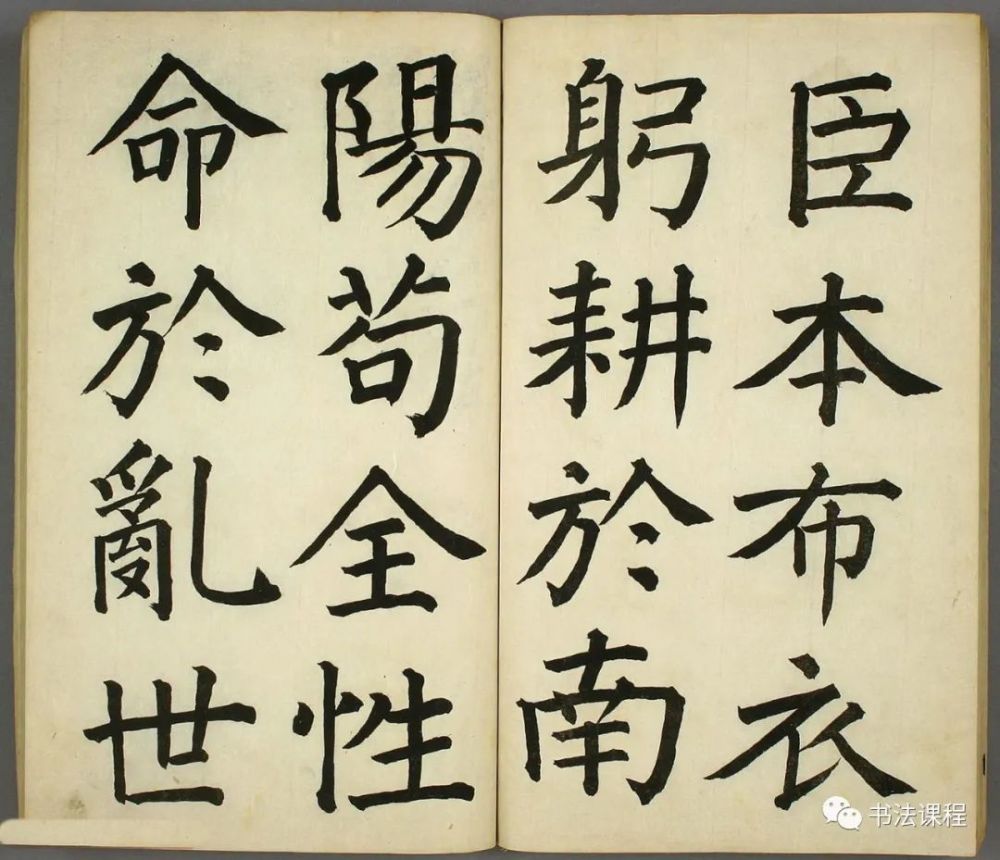 臣本布衣
躬耕於南
陽苟全性
命於亂世
书法课程